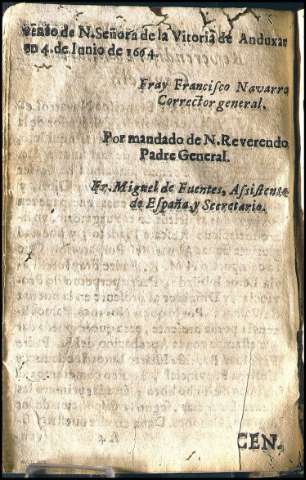 vento de N. Señora de la Vitoria de Anduxar
en 4. de Iunio de 1664.
Fray Francisco Navarro
Corrector general.
Por mandado de N. Reverendo
Padre General.
Fr. Miguel de Fuentes, Assistente
de España, y Secretario.
CEN.